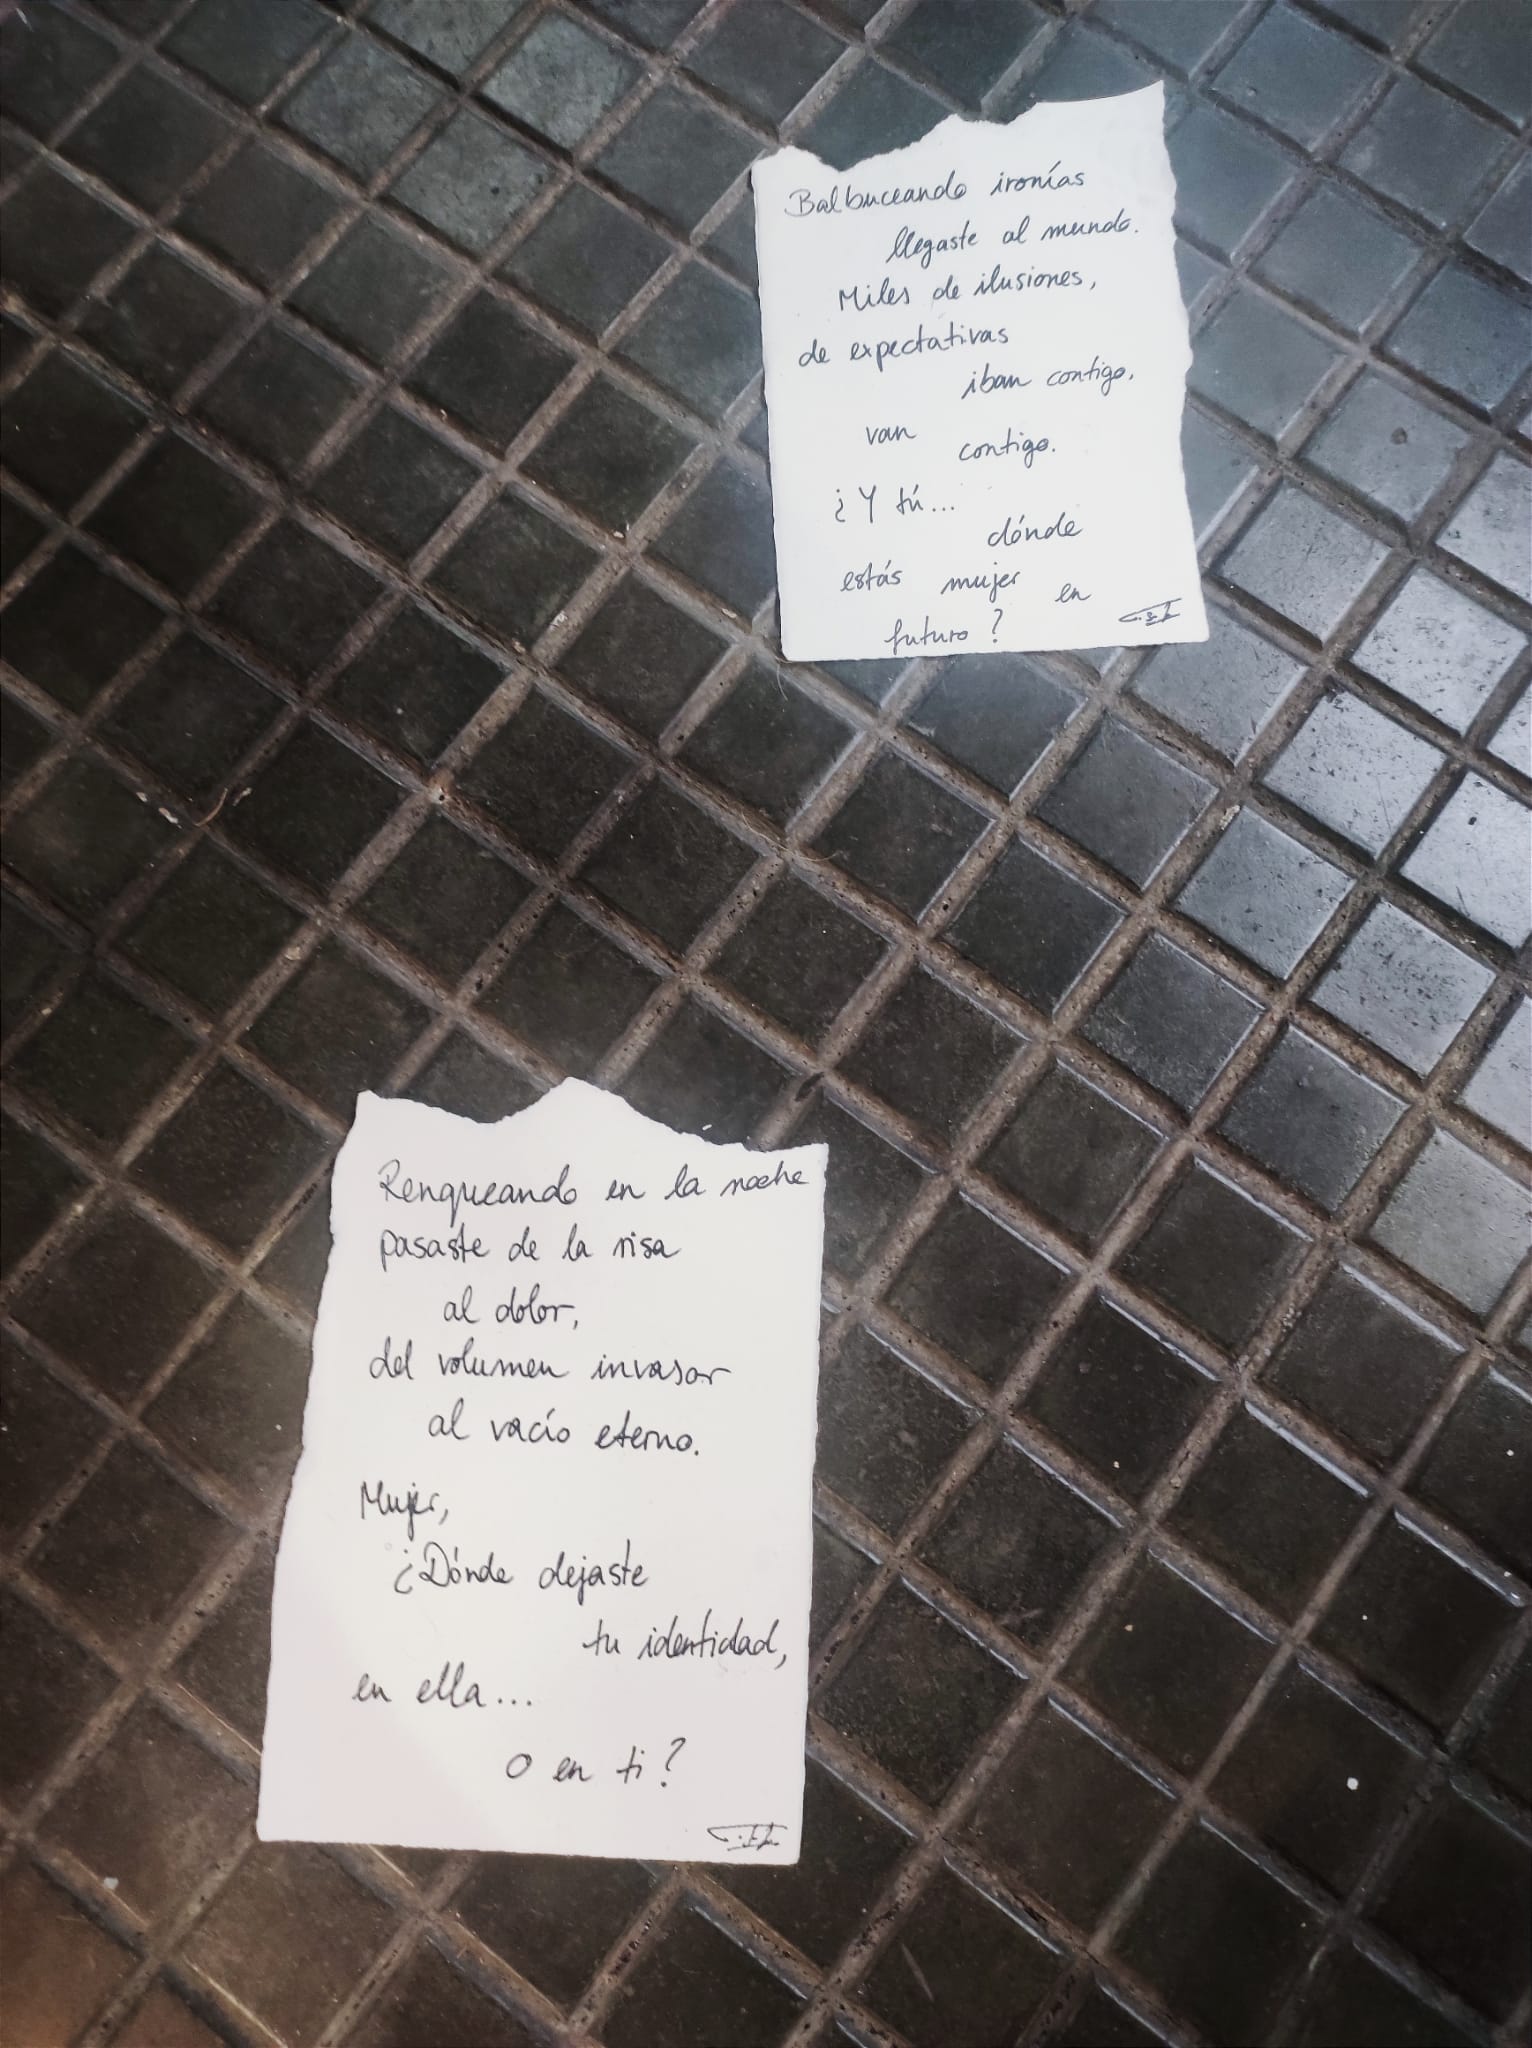 Balbuceando ironías
llegaste al mundo.
Miles de ilusiones,
de expectativas
iban contigo,
van contigo.
¿Y tú...
dónde
estás mujer en
futuro?
Renqueando en la noche
pasaste de la risa
al dolor,
del volumen invasor
al vacío eterno.
Mujer,
¿Dónde dejaste
tu identidad,
en ella...
O en ti?